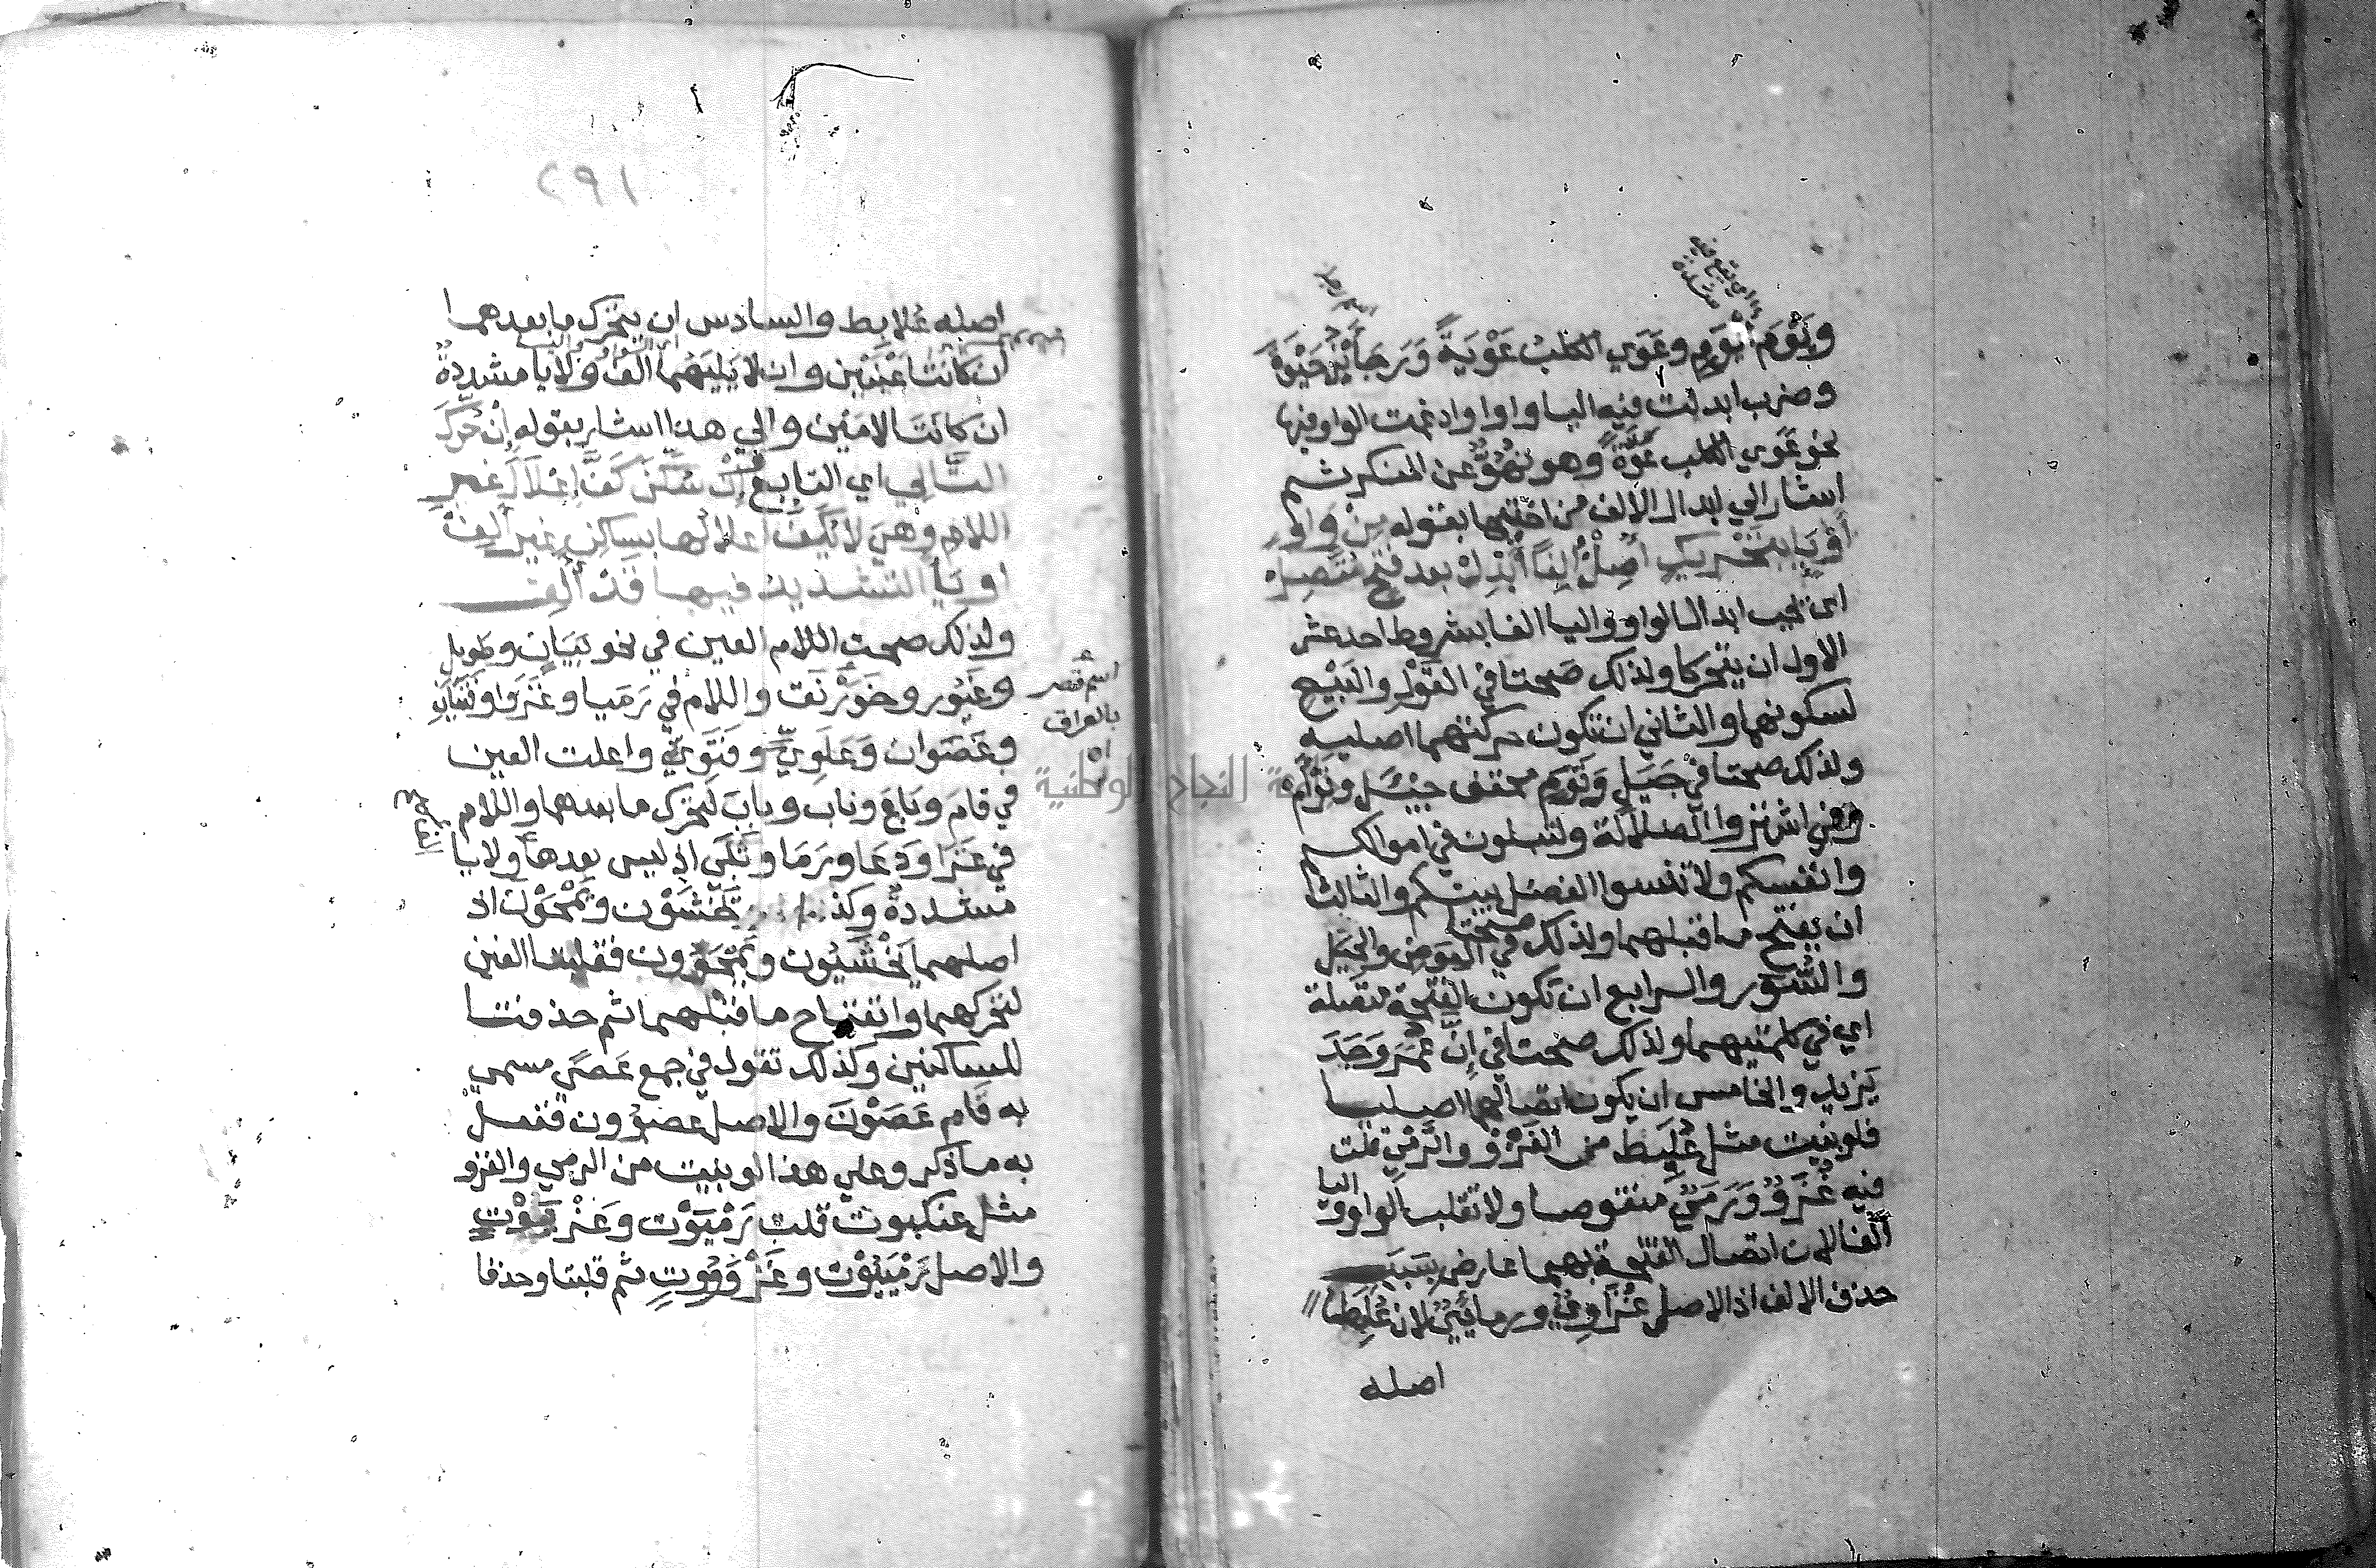 اي تقع فيه
شدة
اسم رجل
وايْوَم ايوم وعَوَي الكلب عَوْيَةً وَرجَاء بْنُ حَيْوَةَ
وضرب ابدلت فيه اليا واوا وادغمت الواو فيها
نحو عَوَي الكلب عَوَّةً وهو نَهُوٌّ عن المنكر ثم
اشار الي ابدال الالف من اختيها بقوله مِنْ وَاوٍ
أوْ يَا بتحْرِيكٍ أُصِلْ أَلِفًا أبْدِلْ بعد فتحٍ مُتَّصِلْ
اي يجب ابدال الواو واليا الفا بشروط احد عشر
الاول ان يتحركا ولذلك صَحتا في القَوْلِ والبَيْعِ
لسكونهما والثاني ان تكون حركتهما اصلية
ولذلك صحتا في جَيَلٍ وَتَوَمٍ مخففى جَيْئَلٍ وتَوْأمٍ
وفي اشتروا الضلالة ولتبلون في اموالكم
وانفسكم ولا تنسوا الفضل بينكم والثالث
ان يفتح ما قبلهما ولذلك صحتا في العِوَضِ والحِيَل
والسُّوَر والرابع ان تكون الفتحة متصلة
اي في كلمتيهما ولذلك صحتا في إنَّ عُمَرَ وَجَدَ
يَزيدَ والخامس ان يكون اتصالهما اصليا
فلو بنيت مثل عُلَبِط من الغَزْوِ والرَّمْيِ قلت
فيه غُزَوٍ وَرُمَيٍ منقوصا ولا تقلب الواو واليا
ألفا لان اتصال الفتحة بهما عارض بسبب
حذف الالف اذ الاصل غُزَاوِوٌ ورمايِيٌ لان عُلَبِطًا
اصله
٢٩١
اصله عُلابِط والسادس ان يتحرك ما بعدهما
ان كانتا عَيْنَيْن وان لا يَلِيَهُما الفٌ ولا يا مشددةٌ
ان كانتا لامَيْن والي هذا اشار بقوله إنْ حُرِّكَ
التَّالِي اي التابع وَإنْ سُكِّنَ كَفَّ إعْلَالَ غيرِ
اللامِ وَهْيَ لا يُكَفّ اعلالُها بساكنٍ غيرِ ألِفْ
او يَاءٍ التشديدُ فيها قَدْ أُلِفْ
ولذلك صحت اللام العين في نحو بَيَانٍ وطَويلٍ
وغَيُور وخَوَرْنَق واللام في رَمَيا وغَزَوَا وفَتَيَانِ
وعَصَوان وَعَلَوِيٍّ وفَتَوِيٍّ واعلت العين
في قامَ وبَاعَ وناب وبابَ لتحرك ما بعدهما واللام
في غَزَا وَدَعَا ورَمَا وتَلَي اذ ليس بعدها ولا يا
مشددة وكذلك يَخْشَوْن ويَمْحَوْن اذ
اصلهما يَخْشَيُون ويَمْحَوُون فقلبتا الفين
لتحركهما وانفتاح ما قبلهما ثم حذفتا
للساكنين وكذلك تقول في جمع عَصًي مسمي
به قَامَ عَصَوْنَ والاصل عصوون ففعل
به ما ذكر وعلي هذا لو بنيت من الرمي والغزو
مثل عنكبوت قلت رَمْيَوْت وغَزْوَوْتٍ
والاصل رَمْيَيُوْت وغَزْوَوُوتٍ ثم قلبتا وحذفا
اسم قصر
بالعراق